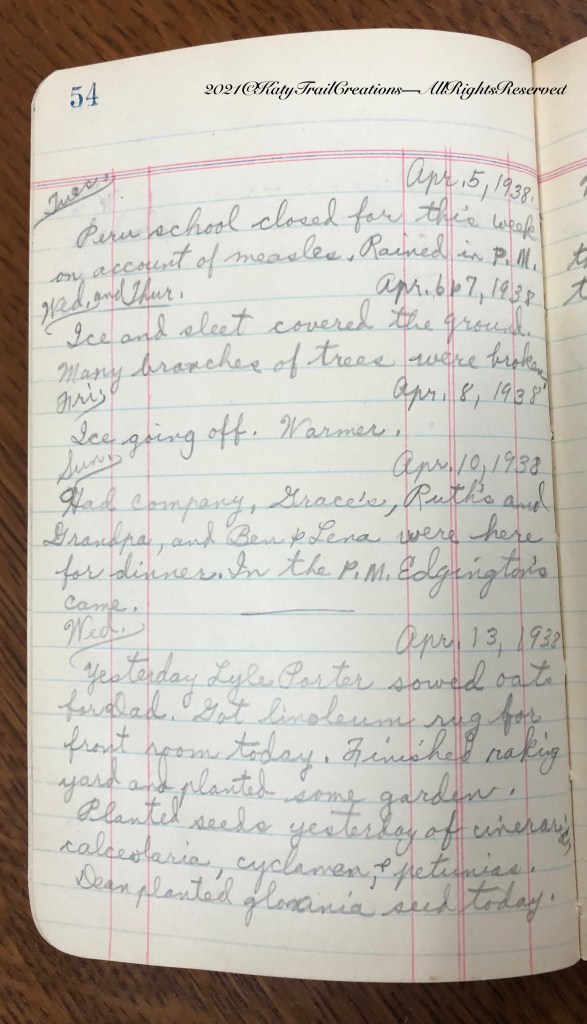 54
2021©KatyTrailCreations—AllRightsReserved
Tues.
Apr. 5, 1938.
Peru school closed for this week
on account of measles. Rained in P.M.
Wed. and Thur.
Apr. 6 & 7, 1938
Ice and sleet covered the ground.
Many branches of trees were broken.
Fri.
Apr. 8, 1938
Ice going off. Warmer.
Sun.
Apr. 10, 1938
Had company, Grace's, Ruth's and
Grandpa, and Ben & Lena were here
for dinner. In the P.M. Edgington's
came.
Wed.
Apr. 13, 1938
Yesterday Lyle Porter sowed oats
for Dad. Got linoleum rug for
front room today. Finished raking
yard and planted some garden.
Planted seeds yesterday of cineraria,
calceolaria, cyclamen, & petunias.
Dean planted gloxinia seed today.